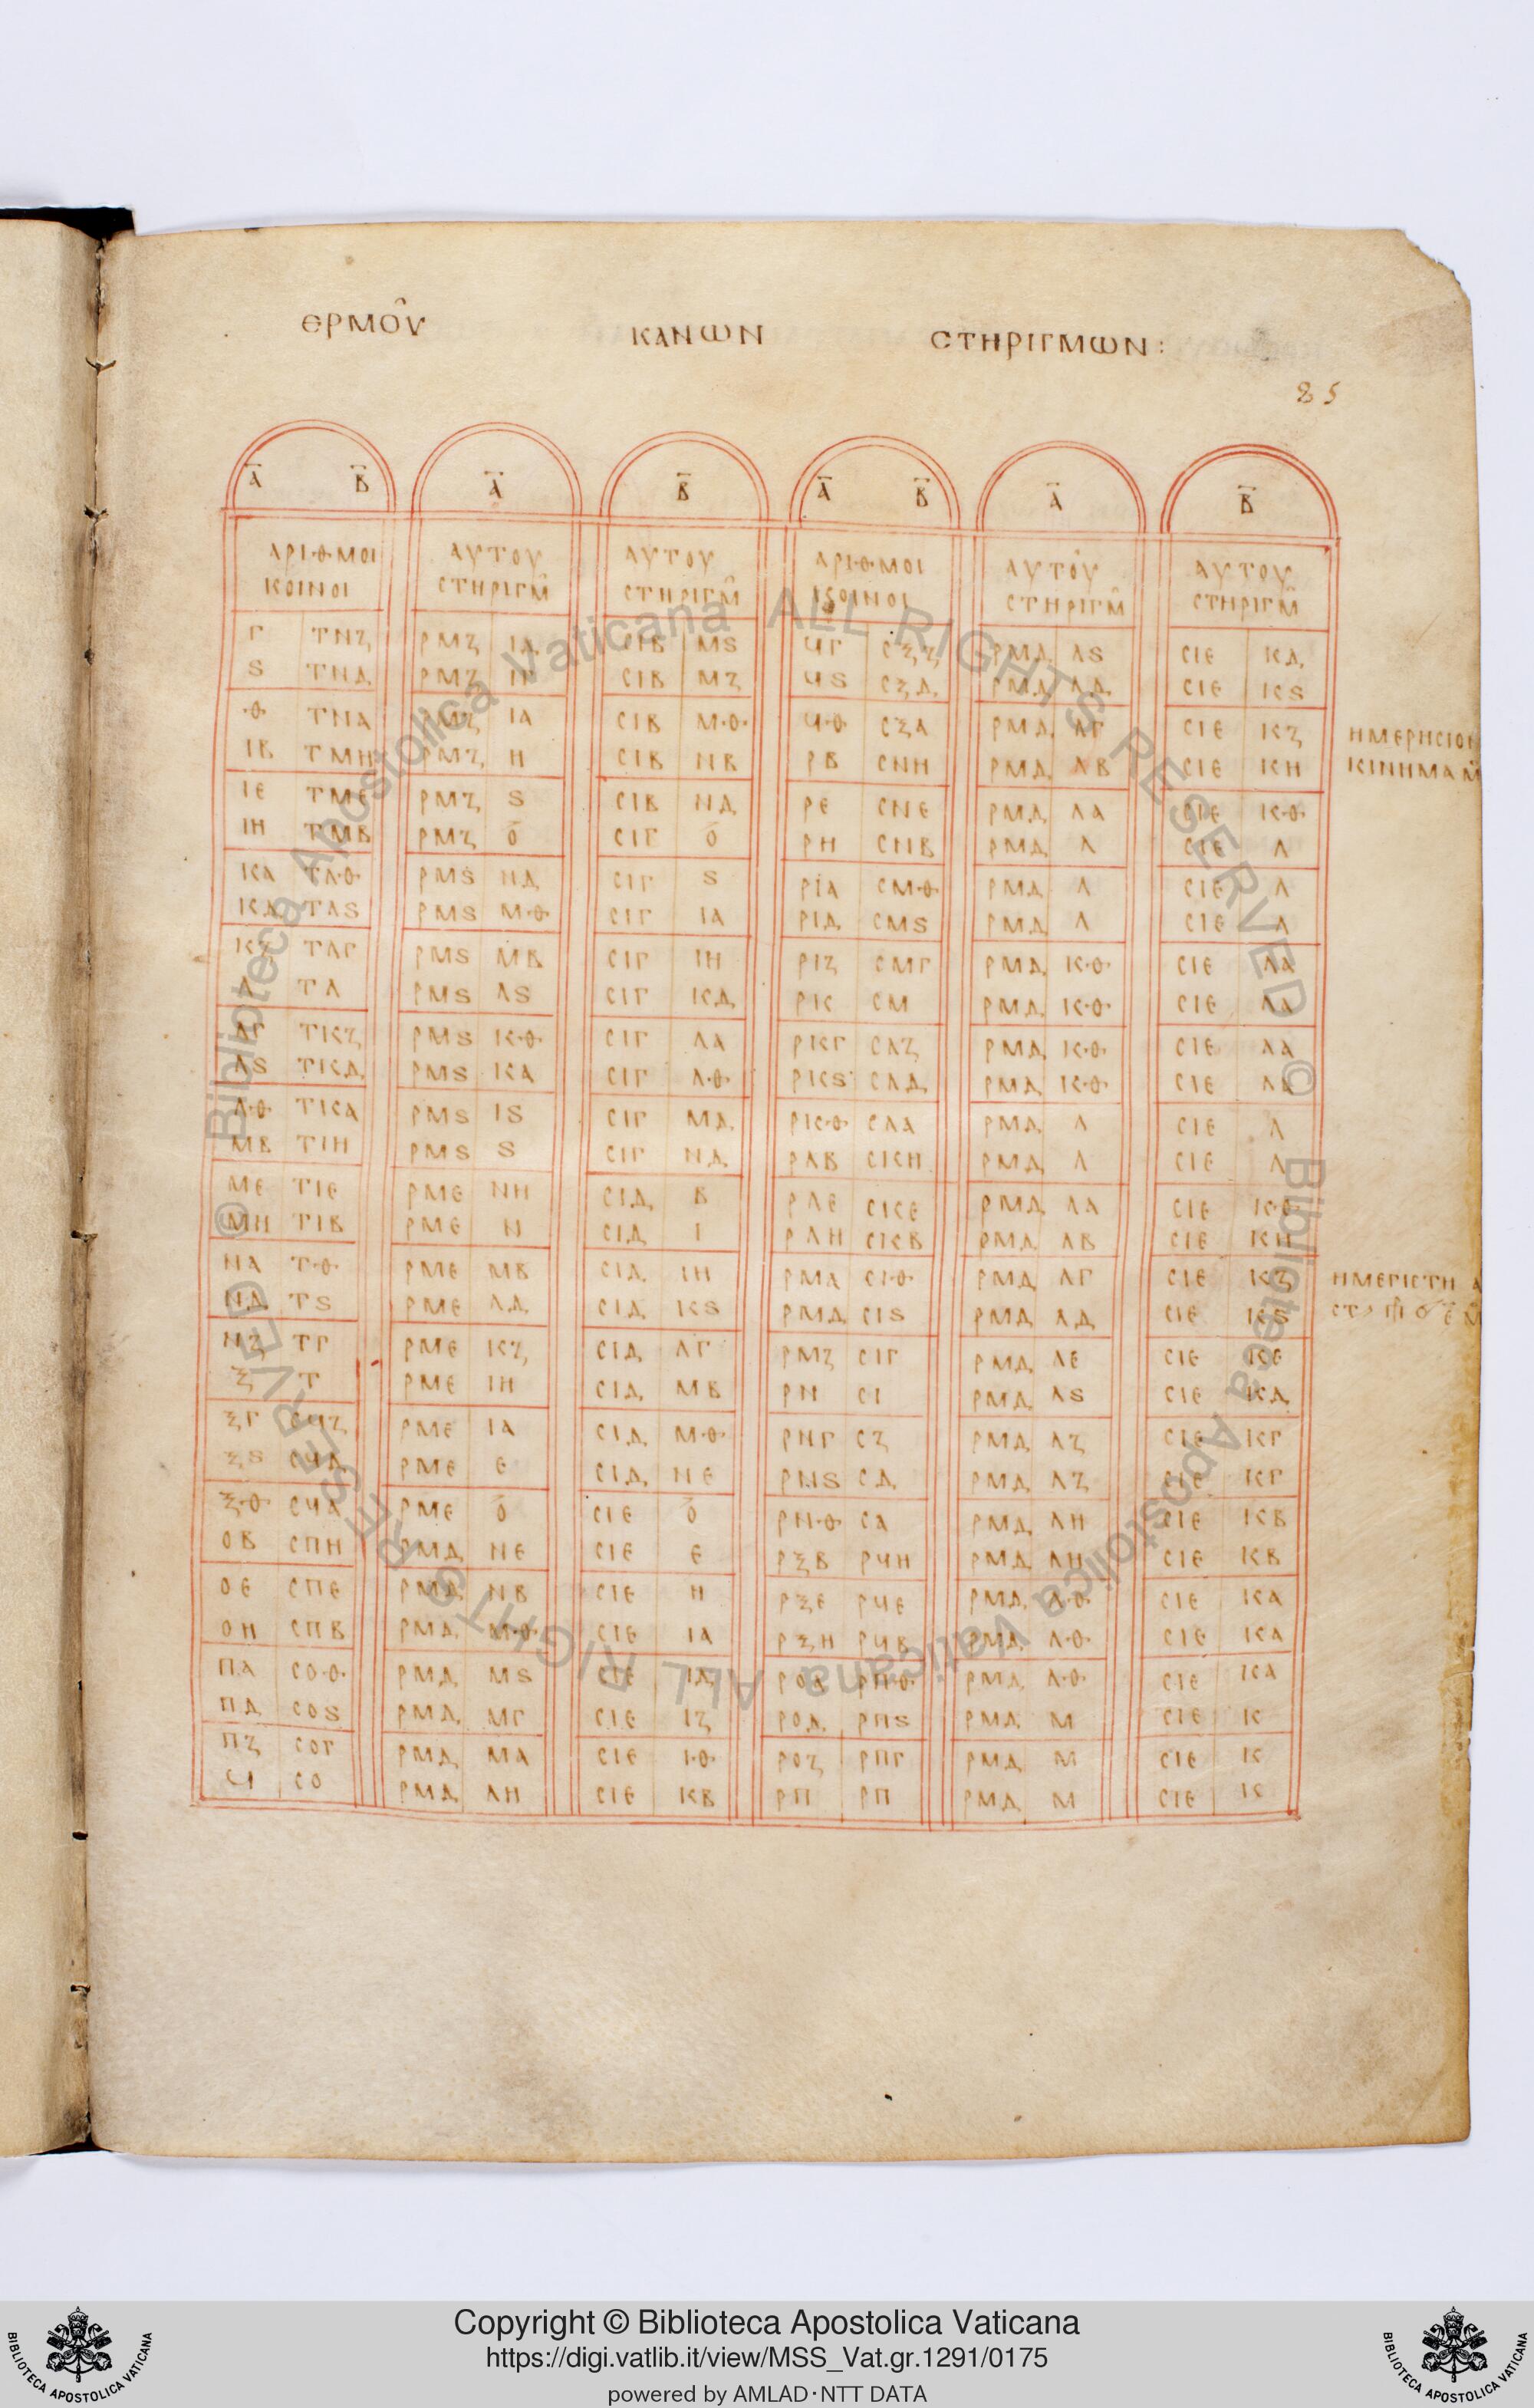 ΕΡΜΟΥ͂ ΚΑΝΩΝ ΣΤΗΡΙΓΜΩΝ:
85
Α̅ Β̅ Α̅ Β̅ Α̅ Β̅ Α̅ Β̅
ΑΡΙΘΜΟΙ ΑΥΤΟΥ ΑΥΤΟΥ ΑΡΙΘΜΟΙ ΑΥΤΟΥ ΑΥΤΟΥ
ΚΟΙΝΟΙ ϹΤΗΡΙΓΜ ϹΤΗΡΙΓΜ ΚΟΙΝΟΙ ϹΤΗΡΙΓΜ ϹΤΗΡΙΓΜ
Γ ΤΝΖ ΡΜΖ ΙΔ ϹΙΒ ΜϚ ϤΓ ϹΞΖ ΡΜΔ ΛϚ ϹΙΕ ΚΔ
Ϛ ΤΝΔ ΡΜΖ ΙΓ ϹΙΒ ΜΖ ϤϚ ϹΞΔ ΡΜΔ ΛΔ ϹΙΕ ΚϚ
Θ ΤΝΑ ΡΜΖ ΙΑ ϹΙΒ ΜΘ ϤΘ ϹΞΑ ΡΜΔ ΛΓ ϹΙΕ ΚΖ ΗΜΕΡΗϹΙΟΝ
ΙΒ ΤΜΗ ΡΜΖ Η ϹΙΒ ΝΒ ΡΒ ϹΝΗ ΡΜΔ ΛΒ ϹΙΕ ΚΗ ΚΙΝΗΜΑ
ΙΕ ΤΜΕ ΡΜΖ Ϛ ϹΙΒ ΝΔ ΡΕ ϹΝΕ ΡΜΔ ΛΑ ϹΙΕ ΚΘ
ΙΗ ΤΜΒ ΡΜΖ Ο̅ ϹΙΓ Ο̅ ΡΗ ϹΝΒ ΡΜΔ Λ ϹΙΕ Λ
ΚΑ ΤΛΘ ΡΜϚ ΝΔ ϹΙΓ Ϛ ΡΙΑ ϹΜΘ ΡΜΔ Λ ϹΙΕ Λ
ΚΔ ΤΛϚ ΡΜϚ ΜΘ ϹΙΓ ΙΑ ΡΙΔ ϹΜϚ ΡΜΔ Λ ϹΙΕ Λ
ΚΖ ΤΛΓ ΡΜϚ ΜΒ ϹΙΓ ΙΗ ΡΙΖ ϹΜΓ ΡΜΔ ΚΘ ϹΙΕ ΛΑ
Λ ΤΛ ΡΜϚ ΛϚ ϹΙΓ ΚΔ ΡΚ ϹΜ ΡΜΔ ΚΘ ϹΙΕ ΛΑ
ΛΓ ΤΚΖ ΡΜϚ ΚΘ ϹΙΓ ΛΑ ΡΚΓ ϹΛΖ ΡΜΔ ΚΘ ϹΙΕ ΛΑ
ΛϚ ΤΚΔ ΡΜϚ ΚΑ ϹΙΓ ΛΘ ΡΚϚ ϹΛΔ ΡΜΔ ΚΘ ϹΙΕ ΛΑ
ΛΘ ΤΚΑ ΡΜϚ ΙϚ ϹΙΓ ΜΔ ΡΚΘ ϹΛΑ ΡΜΔ Λ ϹΙΕ Λ
ΜΒ ΤΙΗ ΡΜϚ Ϛ ϹΙΓ ΝΔ ΡΛΒ ϹΚΗ ΡΜΔ Λ ϹΙΕ Λ
ΜΕ ΤΙΕ ΡΜΕ ΝΗ ϹΙΔ Β ΡΛΕ ϹΚΕ ΡΜΔ ΛΑ ϹΙΕ ΚΘ
ΜΗ ΤΙΒ ΡΜΕ Ν ϹΙΔ Ι ΡΛΗ ϹΚΒ ΡΜΔ ΛΒ ϹΙΕ ΚΗ
ΝΑ ΤΘ ΡΜΕ ΜΒ ϹΙΔ ΙΗ ΡΜΑ ϹΙΘ ΡΜΔ ΛΓ ϹΙΕ ΚΖ ΗΜΕΓΙϹΤΗ
ΝΔ ΤϚ ΡΜΕ ΛΔ ϹΙΔ ΚϚ ΡΜΔ ϹΙϚ ΡΜΔ ΛΔ ϹΙΕ ΚϚ
ΝΖ ΤΓ ΡΜΕ ΚΖ ϹΙΔ ΛΓ ΡΜΖ ϹΙΓ ΡΜΔ ΛΕ ϹΙΕ ΚΕ
Ξ Τ ΡΜΕ ΙΗ ϹΙΔ ΜΒ ΡΝ ϹΙ ΡΜΔ ΛϚ ϹΙΕ ΚΔ
ΞΓ ϹϤΖ ΡΜΕ ΙΑ ϹΙΔ ΜΘ ΡΝΓ ϹΖ ΡΜΔ ΛΖ ϹΙΕ ΚΓ
ΞϚ ϹϤΔ ΡΜΕ Ε ϹΙΔ ΝΕ ΡΝϚ ϹΔ ΡΜΔ ΛΖ ϹΙΕ ΚΓ
ΞΘ ϹϤΑ ΡΜΕ Ο̅ ϹΙΕ Ο̅ ΡΝΘ ϹΑ ΡΜΔ ΛΗ ϹΙΕ ΚΒ
ΟΒ ϹΠΗ ΡΜΔ ΝΕ ϹΙΕ Ε ΡΞΒ ΡϤΗ ΡΜΔ ΛΗ ϹΙΕ ΚΒ
ΟΕ ϹΠΕ ΡΜΔ ΝΒ ϹΙΕ Η ΡΞΕ ΡϤΕ ΡΜΔ ΛΘ ϹΙΕ ΚΑ
ΟΗ ϹΠΒ ΡΜΔ ΜΘ ϹΙΕ ΙΑ ΡΞΗ ΡϤΒ ΡΜΔ ΛΘ ϹΙΕ ΚΑ
ΠΑ ϹΟΘ ΡΜΔ ΜϚ ϹΙΕ ΙΔ ΡΟΑ ΡΠΘ ΡΜΔ ΛΘ ϹΙΕ ΚΑ
ΠΔ ϹΟϚ ΡΜΔ ΜΓ ϹΙΕ ΙΖ ΡΟΔ ΡΠϚ ΡΜΔ Μ ϹΙΕ Κ
ΠΖ ϹΟΓ ΡΜΔ ΜΑ ϹΙΕ ΙΘ ΡΟΖ ΡΠΓ ΡΜΔ Μ ϹΙΕ Κ
Ϥ ϹΟ ΡΜΔ ΛΗ ϹΙΕ ΚΒ ΡΠ ΡΠ ΡΜΔ Μ ϹΙΕ Κ
© Biblioteca Apostolica Vaticana ALL RIGHTS RESERVED © Biblioteca Apostolica Vaticana ALL RIGHTS RESERVED
Copyright © Biblioteca Apostolica Vaticana
https://digi.vatlib.it/view/MSS_Vat.gr.1291/0175
powered by AMLAD·NTT DATA
BIBLIOTECA APOSTOLICA VATICANA
BIBLIOTECA APOSTOLICA VATICANA